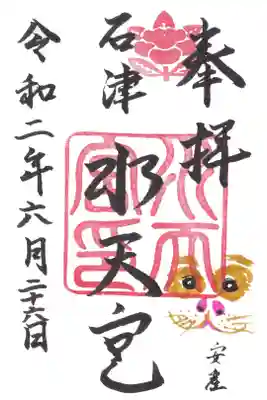 奉拝
石津
水天宮
令和二年六月二十六日
安産